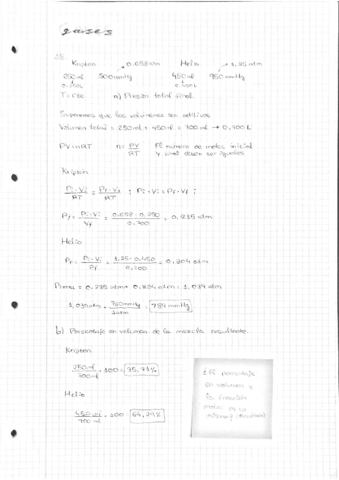 gases
Kripton → 0.658 atm Helio → 1.25 atm
250 ml 500 mmHg 450 ml 950 mmHg
0.250L 0.450L
T = cte a) Presión total final
Suponemos que los volúmenes son aditivos
Volumen total = 250ml + 450ml = 700ml → 0,700L
PV = nRT n = PV/RT El número de moles inicial
y final deben ser iguales
Kripton
Pi·Vi/RT = Pf·Vf/RT ; Pi·Vi = Pf·Vf ;
Pf = Pi·Vi/Vf = 0.658·0.250/0.700 = 0.235 atm
Helio
Pf = Pi·Vi/Pf = 1.25·0.450/0.700 = 0.804 atm
0.235 atm + 0.804 atm = 1.039 atm
1.039 atm · 760 mmHg/1 atm = 789 mmHg
b) Porcentaje en volumen de la mezcla resultante.
Kripton
250 ml/700 ml · 100 = 35,71%
Helio
450 ml/700 ml · 100 = 64,29%
El porcentaje
en volumen y
la fracción
molar es lo